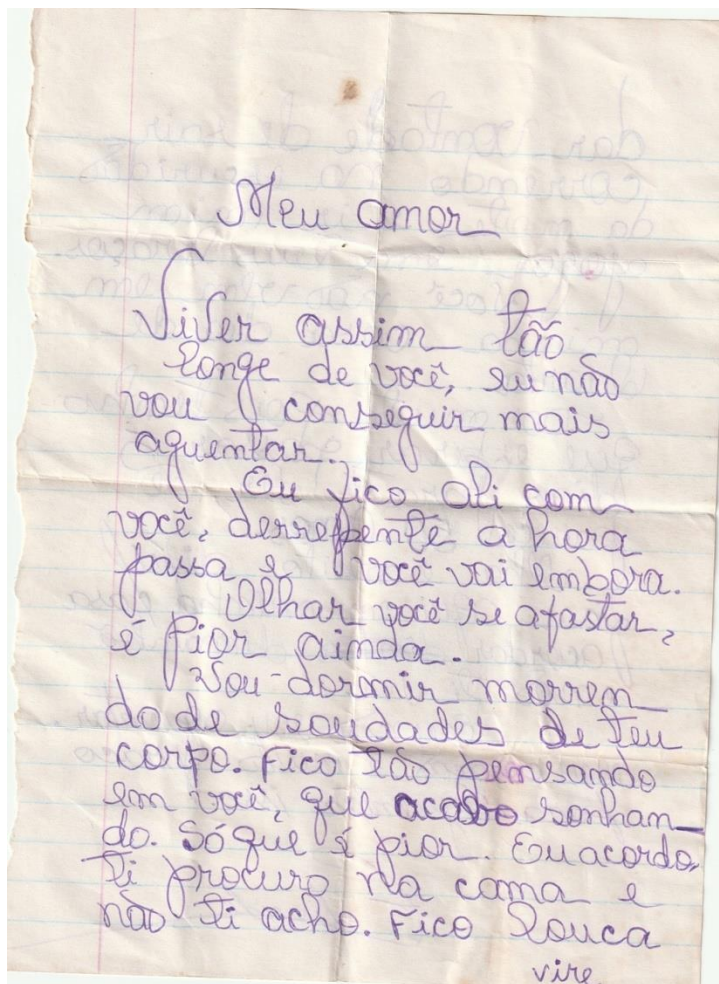 Meu amor
Viver assim tão
longe de você, eu não
vou conseguir mais
aguentar.
Eu fico ali com
você, derrepente a hora
passa e você vai embora.
Olhar você se afastar,
é pior ainda.
Vou dormir morren
do de saudades de teu
corpo. Fico tão pensando
em você, que acabo sonhan_
do. Só que é pior. Eu acordo,
ti procuro na cama e
não ti acho. Fico louca
vire